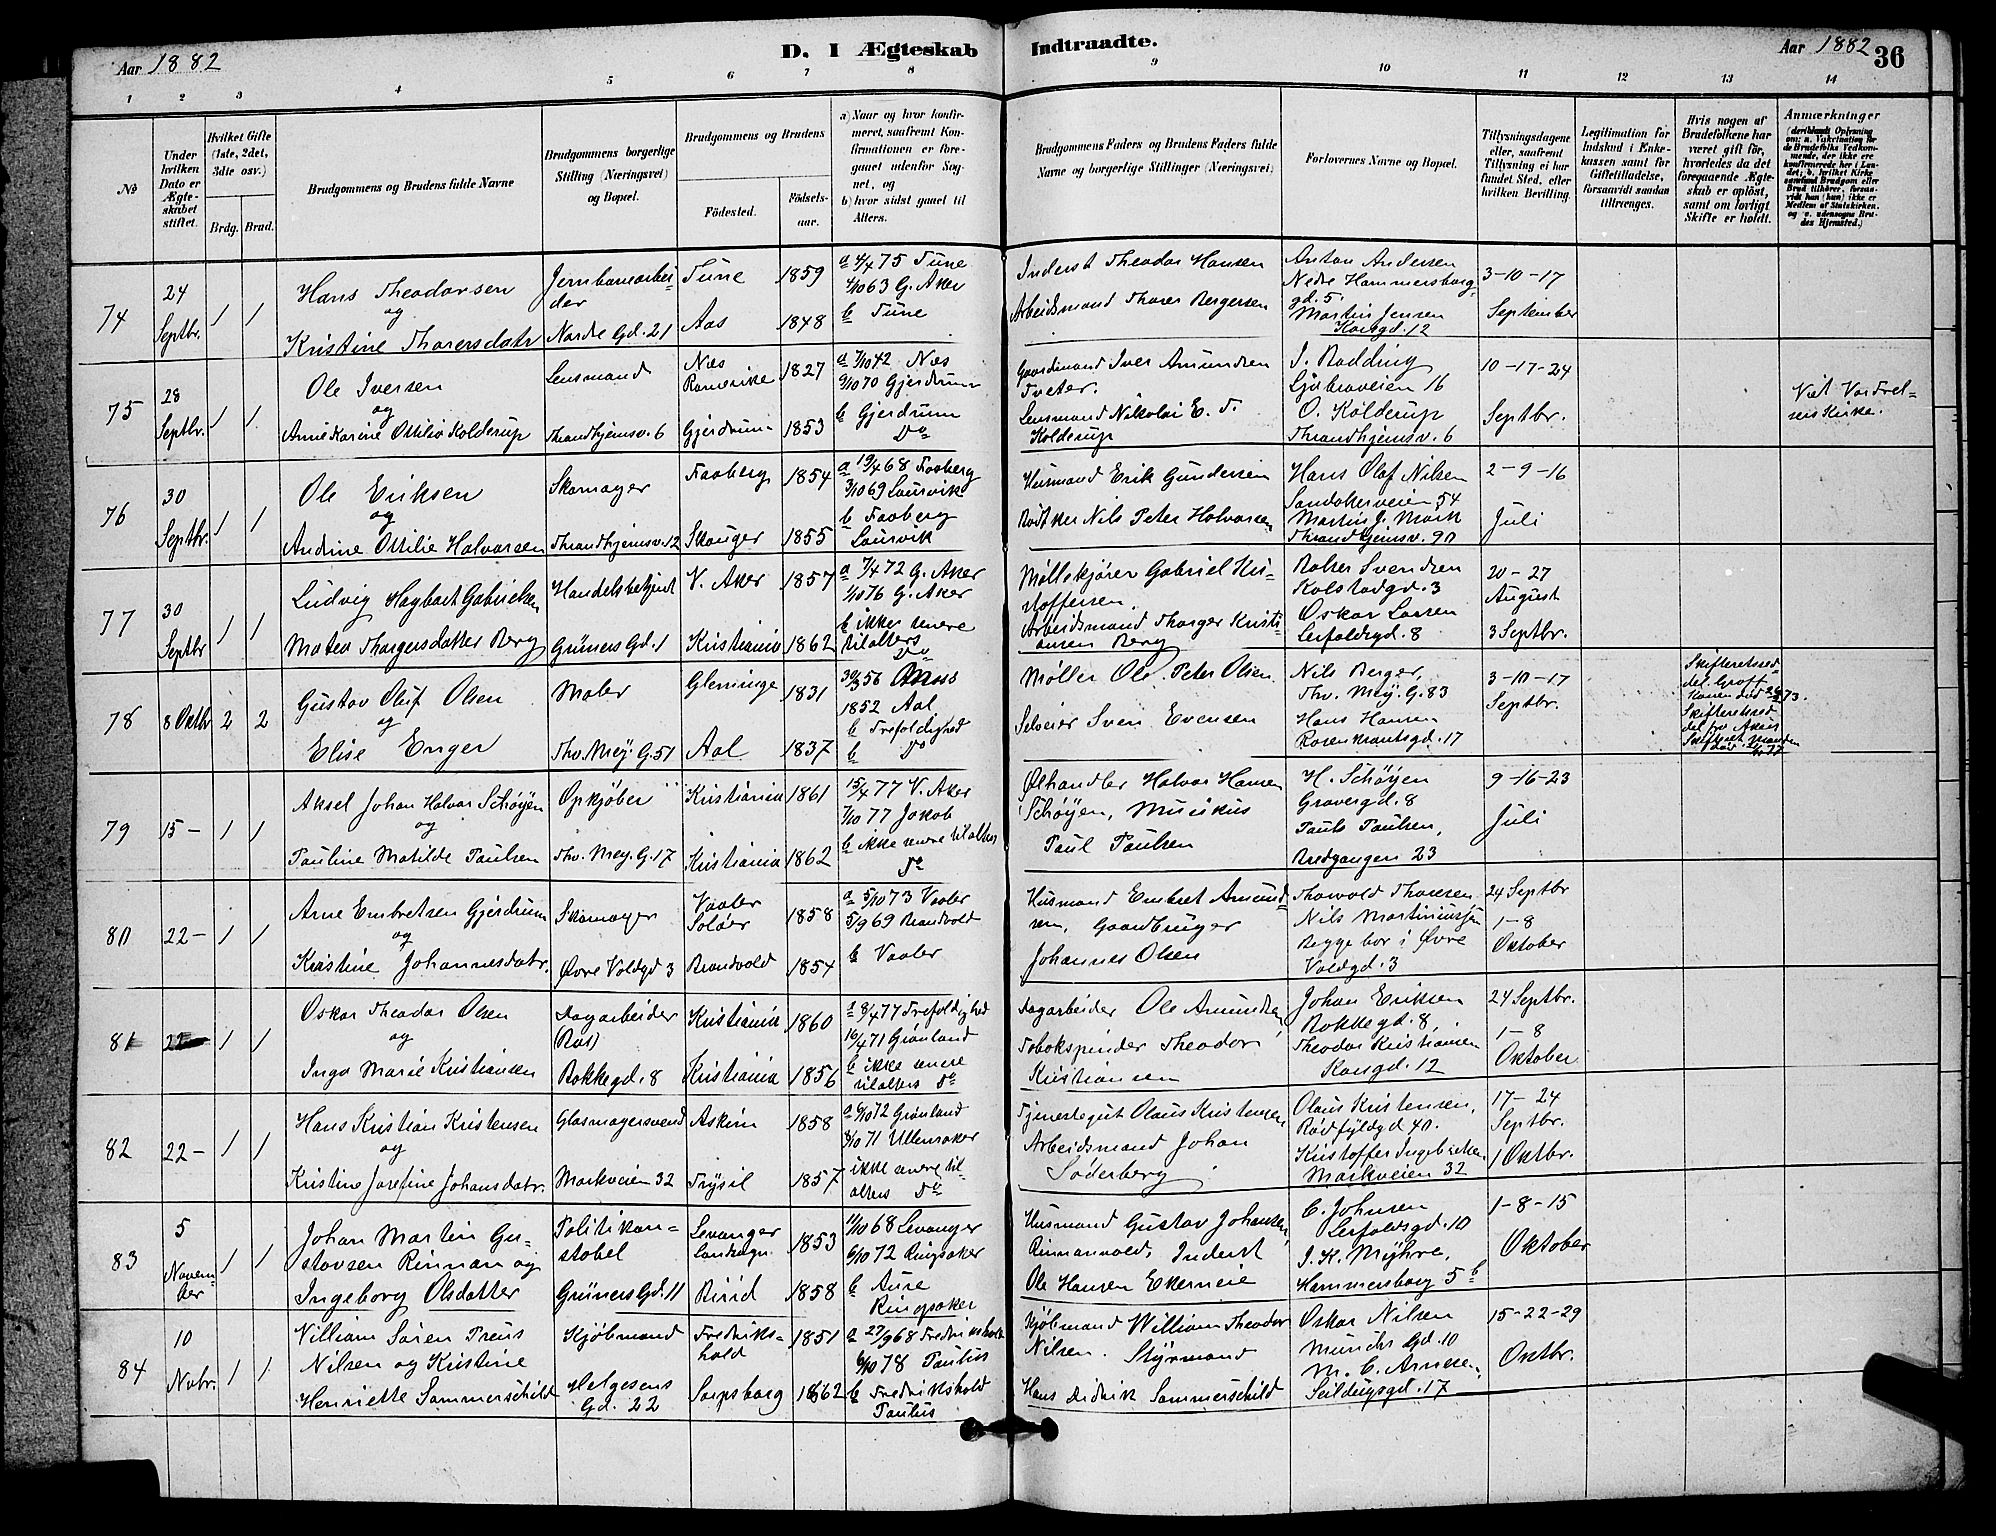 Aar 1882
D. I Ægteskab Indtraadte.
Aar 1882
36
1 2 3 4 5 6 7 8 9 10 11 12 13 14
No
Under hvilken Dato er Ægteskabet stiftet.
Hvilket Gifte (1ste, 2det, 3die osv.)
Brdg. Brud.
Brudgommens og Brudens fulde Navne
Brudgommens borgerlige Stilling (Næringsvei) og Bopæl.
Brudgommens og Brudens
Fødested.
Fødselsaar.
a) Naar og hvor konfirmeret, saafremt Konfirmationen er foregaaet udenfor Sognet, og
b) hvor sidst gaaet til Alters.
Brudgommens Faders og Brudens Faders fulde Navne og borgerlige Stillinger (Næringsvei)
Forlovernes Navne og Bopæl.
Tillysningsdagene eller, saafremt Tillysning ei har fundet Sted, efter hvilken Bevilling.
Legitimation for Indskud i Enkekassen samt for Giftetilladelse, forsaavidt saadan tiltrænges.
Hvis nogen af Brudefolkene har været gift før, hvorledes da det foregaaende Ægteskab er opløst, samt om lovligt Skifte er holdt.
Anmærkninger
74
24 Septbr.
1 1
Hans Theodorsen
og
Kristine Thorersdatr
Jernbanearbeider
Nordre Gd. 21
Tune 1859
Aas 1848
a 4/4 75 Tune
4/10 63 G. Aker
b Tune
Inderst Theodor Hansen
Arbeidsmand Thorer Bergersen
Anton Andersen
Nedre Hammersborggd. 5
Martin Jensen
Korsgd. 12
3-10-17
September
75
28 Septbr.
1 1
Ole Iversen
og
Anne Karine Ottilia Kolderup
Lensmand
Throndhjemsv. 6
Næs Romerike 1827
Gjerdrum 1853
a 7/10 42 Næs
9/10 70 Gjerdrum
b Gjerdrum
Do
Gaardmand Iver Amundsen
Tveter.
Lensmand Nikolai E. F.
Kolderup
J. Rodding
Ljabroveien 16
O. Kolderup
Throndhjemsv. 6
10-17-24
Septbr.
Viet Vor Frelsers Kirke.
76
30 Septbr.
1 1
Ole Eriksen
og
Andrine Ottilie Halvorsen
Skomager
Throndhjemsv. 12
Faaberg 1854
Skouger 1855
a 19/4 68 Faaberg
3/10 69 Laurvik
b Faaberg
Laurvik
Husmand Erik Gundersen
Nils Peter Halvorsen
Hans Olaf Nilsen
Sandakerveien 54
Martin J. Mork
Throndhjemsv. 90
2-9-16
Juli
77
30 Septbr
1 1
Ludvig Hagbart Gabrielsen
Matea Thorgersdatter Berg
Handelsbetjent
Grüners Gd. 1
V. Aker 1857
Kristiania 1862
a 7/4 72 G. Aker
1/10 76 G. Aker
b ikke senere
tilalters
Do
Møllekjører Gabriel Kristoffersen.
Arbeidsmand Thorger Kristiansen Berg
Svendsen
Kolstadgd. 3
Oskar Larsen
Leifoldsgd. 8
20-27
August
3 Septbr.
78
8 Oktbr
2 2
Gustav Oluf Olsen
og
Elise Enger
Maler
Thv. Mey. G. 51
Glemminge 1831
Aal 1837
30/3 56
1852 Aal
b Trefoldighed
b Do
Møller Ole Peter Olsen
Selveier Sven Evensen
Nils Berger,
Thv. Mey. G. 83
Hans Hansen
Rosenkrantsgd. 17
3-10-17
Septbr.
79
15 -
1 1
Aksel Johan Halvor Schøyen
og
Pauline Matilde Paulsen
Opkjøber
Thv. Mey. G. 17
Kristiania 1861
Kristiania 1862
15/4 77 V. Aker
7/10 77 Jakob
b ikke senere til alters
Do
Ølhandler Halvor Hansen
Schøyen, Musikus
Paul Paulsen
H. Schøyen
Graversgd. 8
Pauls Paulsen,
Bredgangen 23
9-16-23
Juli
80
22 -
1 1
Arne Embretsen Gjerdrum
og
Kristine Johannesdatr.
Skomager
Øvre Voldgd 3
Vaaler Soløer 1858
Brandvold 1854
a 5/10 73 Vaaler
5/9 69 Brandvold
b Vaaler
Husmand Embret Amundsen, Gaardbruger
Johannes Olsen
Thorvald Thoresen
Nils Martiniussen
Begge bor i Øvre
Voldgd. 3
24 Septbr
1-8
Oktober
81
22 -
1 1
Oskar Theodor Olsen
og
Inga Marie Kristiansen
Dagarbeider
Bakkegd. 8
Kristiania 1860
Kristiania 1856
a 8/4 77 Trefoldighed
16/4 71 Grønland
b ikke senere
tilalters Do
Dagarbeider Ole Amundsen
Tobakspinder Theodor
Kristiansen
Johan Eriksen
Bakkegd. 8,
Theodor Kristiansen
Korsgd. 12
24 Septbr.
1-8
Oktober
82
22 -
1 1
Hans Kristian Kristensen
og
Kristine Josefine Johansdatr.
Glasmagersvend
Markveien 32
Askim 1858
Trysil 1857
a 6/10 72 Grønland
8/10 71 Ullensaker
ikke senere til
alters Do
Tjenestegut Olaus Kristensen
Arbeidsmand Johan
Söderberg
Olaus Kristensen,
Rødfyldgd 40.
Kristoffer Ingebretsen
Markveien 32
17-24
Septbr.
1 Oktbr.
83
5 November
1 1
Johan Martin Gustavsen Rinnan og
Ingeborg Olsdatter
Politikonstabel
Grüners Gd. 11
Levanger Landsogn 1853
Birid 1858
11/10 68 Levanger
6/10 72 Ringsaker
b Aure
Ringsaker
Husmand Gustav Johansen
Rinnanvold, Inderst
Ole Hansen Ekerneie
C. Johnsen
Leifoldsgd. 10
J. K. Myhre,
Hammersborg 5 b
1-8-15
Oktober
84
10 Nobr.
1 1
William Sören Preus
Nilsen og Kristine
Henriette Sommerschild
Kjøbmand
Helgesens Gd. 22
Fredrikshald 1851
Sarpsborg 1862
a 27/9 68 Fredrikshald
6/10 78 Paulus
b Fredrikshald
Paulus
Kjøbmand William Theodor
Nilsen. Styrmand
Hans Didrik Sommerschild
Oskar Nilsen
Munchs Gd. 10
M. C. Arnesen,
Seildugsgd. 17
15-22-29
Oktbr.